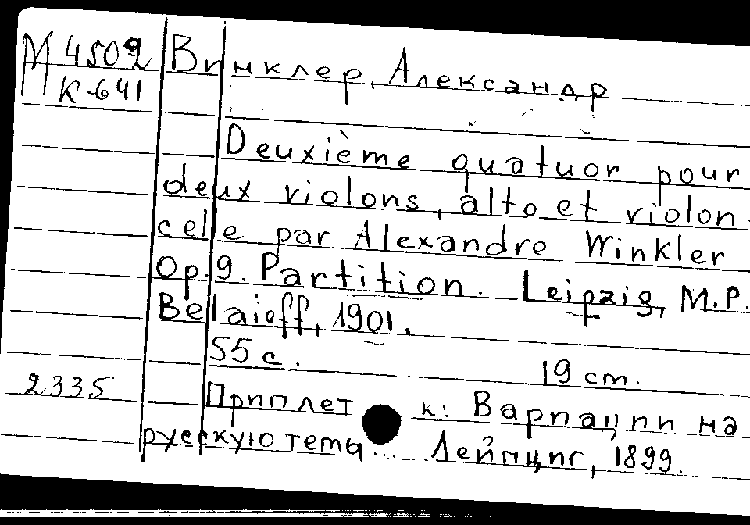 М 4502 Винклер, Александр
К-641
Deuxième quatuor pour
deux violons, alto et violon-
celle par Alexandre Winkler
Op. 9. Partition. Leipzig, M.P.
Belaieff, 1901.
55 с. 19 cm.
2335 Приплет к: Вариации на
русскую тему... Лейпциг, 1899.